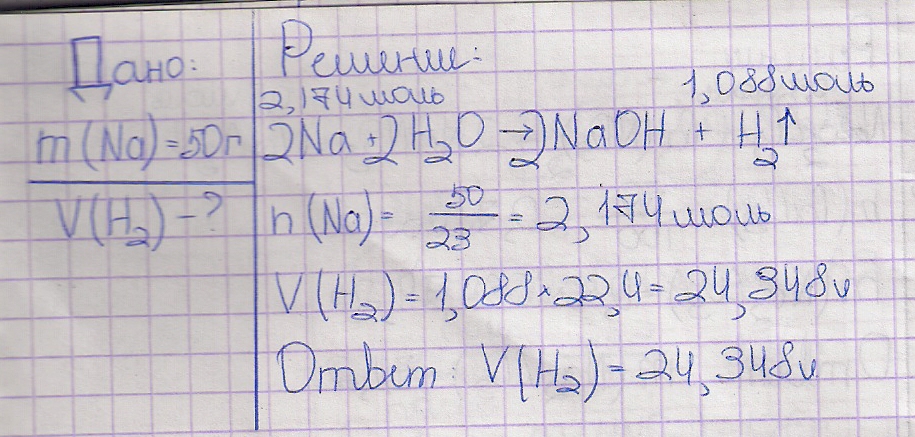 Дано:
m(Na)=50г
V(H₂)-?
Решение:
2,174моль 1,088моль
2Na+2H₂O→2NaOH + H₂↑
n(Na)= 50/23 = 2,174моль
V(H₂)=1,088×22,4=24,348л
Ответ: V(H₂)=24,348л